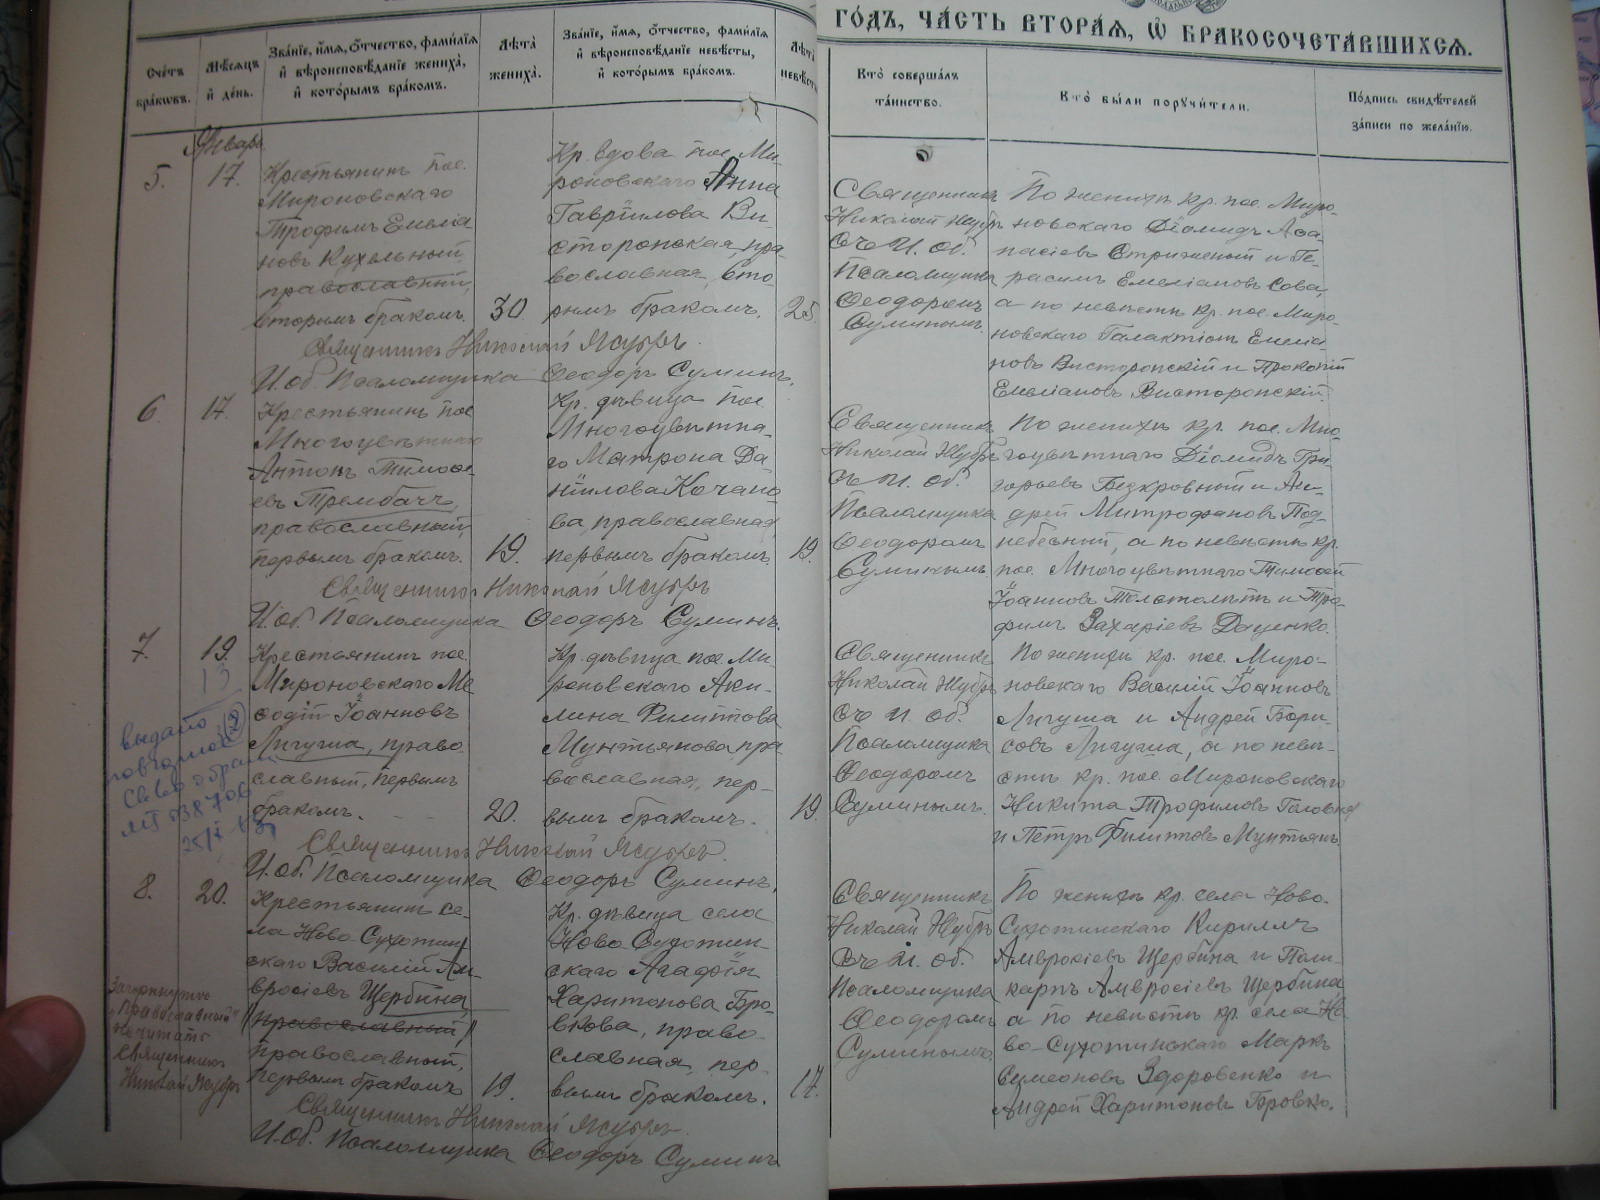 ГО́ДЪ, ЧА́СТЬ ВТОРА́Я, Ѡ҆ БРАКОСОЧЕТА́ВШИХСЯ.
Сче́тъ бра́кѡвъ.
Мѣ́сяцъ и҆ де́нь.
Зва́нїе, и҆́мя, ѻ҆́тчество, фами́лїя и҆ вѣроисповѣ́данїе жениха̀, и҆ кото́рымъ бра́комъ.
Лѣ́та жениха̀.
Зва́нїе, и҆́мя, ѻ҆́тчество, фами́лїя и҆ вѣроисповѣ́данїе невѣ́сты, и҆ кото́рымъ бра́комъ.
Лѣ́та
Кто̀ соверша́лъ та́инство.
Кто̀ бы́ли поручи́тели.
По́дпись свидѣ́телей за́писи по жела́нїю.
Января
5.
17.
Крестьянинъ пос.
Мироновскаго
Трофимъ Емелiа
новъ Кухельный,
православный,
вторымъ бракомъ.
30
Кр. вдова пос. Ми-
роновскаго Анна
Гаврiилова Ви-
сторопская, пра
вославная, вто-
рымъ бракомъ.
25.
Священникъ
Николай Ясубръ
съ И. об.
Псаломщика
Ѳеодоромъ
Суминымъ.
По женихѣ кр. пос. Миро-
новскаго Дiомидъ Аѳа-
насiевъ Стриженый и Ге-
расимъ Емелiановъ Сова,
а по невѣстѣ кр. пос. Миро-
новскаго Галактiонъ Емелiа
новъ Висторопскiй и Прокопiй
Емелiановъ Висторопскiй.
Священникъ Николай Ясубръ.
И. об. Псаломщика Ѳеодоръ Суминъ.
6.
17.
Крестьянинъ пос.
Многоцвѣтнаго
Антонъ Тимоѳе
евъ Трембачъ,
православный,
первымъ бракомъ.
19.
Кр. дѣвица пос.
Многоцвѣтна-
го Матрона Да
нiилова Кочано
ва, православная,
первымъ бракомъ.
19.
Священникъ
Николай Ясубръ
съ И. об.
Псаломщика
Ѳеодоромъ
Суминымъ
По женихѣ кр. пос. Мно-
гоцвѣтнаго Дiомидъ Гри-
горьевъ Безкровный и Ан-
дрей Митрофановъ Под-
небесный, а по невѣстѣ кр.
пос. Многоцвѣтнаго Тимоѳей
Iоанновъ и Тро-
фимъ Захарiевъ Доценко.
Священникъ Николай Ясубръ
И. об. Псаломщика Ѳеодоръ Суминъ.
7.
19.
Крестьянинъ пос.
Мироновскаго Ме
ѳодiй Iоанновъ
Лигуша, право
славный, первымъ
бракомъ.
20.
Кр. дѣвица пос. Ми-
роновскаго Аки-
лина Филиппова
Мунтьянова, пра
вославная, пер-
вымъ бракомъ.
19.
Священникъ
Николай Ясубръ
съ И. об.
Псаломщика
Ѳеодоромъ
Суминымъ.
По женихѣ кр. пос. Миро-
новскаго Василiй Iоанновъ
Лигуша и Андрей Бори-
совъ Лигуша, а по невѣ-
стѣ кр. пос. Мироновскаго
Никита Трофимовъ Головко
и Петръ Филипповъ Мунтьянъ
выдано
Священникъ Николай Ясубръ.
И. об. Псаломщика Ѳеодоръ Суминъ.
8.
20.
Крестьянинъ се-
ла Ново Сухотин
скаго Василiй Ам
вросiевъ Щербина,
православный
православный,
первымъ бракомъ
19.
Кр. дѣвица села
Ново Сухотин-
скаго Агафiя
Харитонова Бро
вкова, право-
славная, пер-
вымъ бракомъ.
17.
Священникъ
Николай Ясубръ
съ И. об.
Псаломщика
Ѳеодоромъ
Суминымъ.
По женихѣ кр. села Ново-
Сухотинскаго Кириллъ
Амвросiевъ Щербина и Поли-
карпъ Амвросiевъ Щербина
а по невѣстѣ кр. села Но
во-Сухотинскаго Маркъ
Симеоновъ Здоровенко и
Андрей Харитоновъ Бровко.
Зачеркнутое
„православный“
не читать
Священникъ
Николай Ясубръ
Священникъ Николай Ясубръ.
И. об. Псаломщика Ѳеодоръ Суминъ